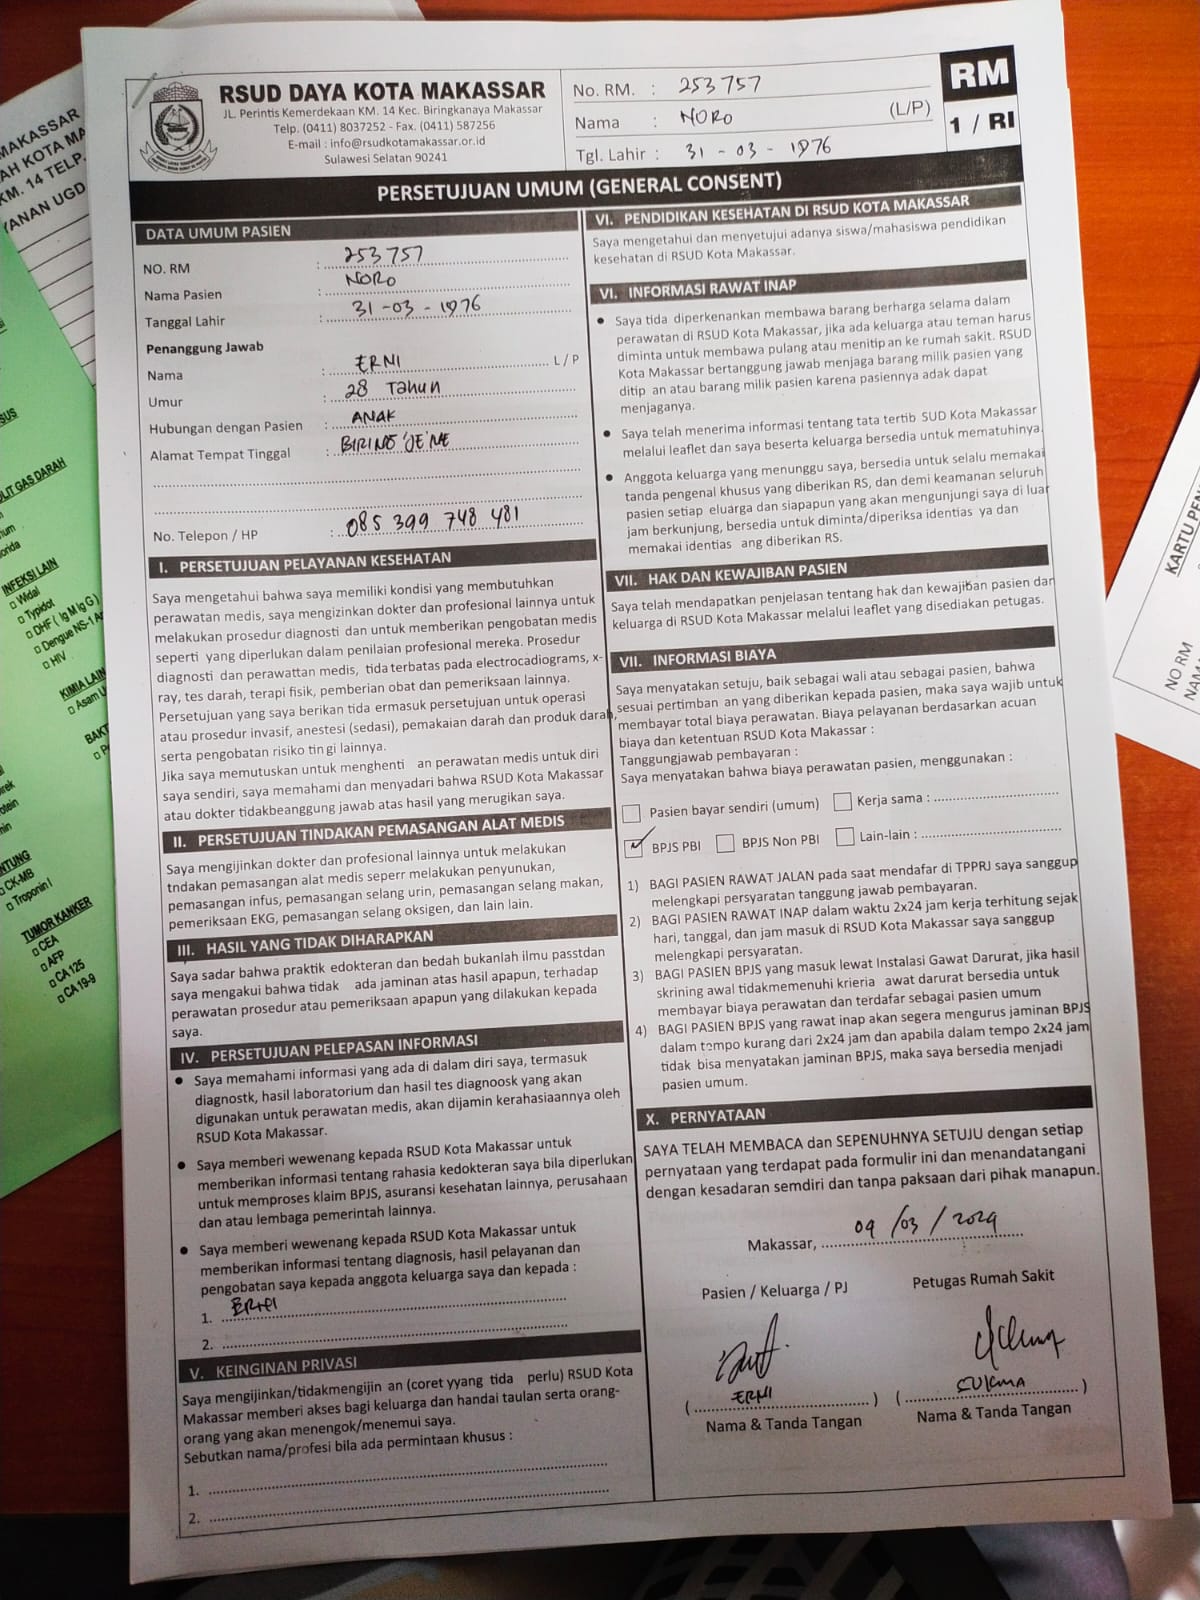 RSUD DAYA KOTA MAKASSAR
JL. Perintis Kemerdekaan KM. 14 Kec. Biringkanaya Makassar
Telp. (0411) 8037252 - Fax. (0411) 587256
E-mail : info@rsudkotamakassar.or.id
Sulawesi Selatan 90241
No. RM. : 253757
Nama : NORO (L/P)
Tgl. Lahir : 31 - 03 - 1976
RM
1 / RI
PERSETUJUAN UMUM (GENERAL CONSENT)
DATA UMUM PASIEN
NO. RM : 253757
Nama Pasien : NORO
Tanggal Lahir : 31 - 03 - 1976
Penanggung Jawab
Nama : ERNI L / P
Umur : 28 Tahun
Hubungan dengan Pasien : ANAK
Alamat Tempat Tinggal : BIRING JE'NE
No. Telepon / HP : 085 399 748 481
I. PERSETUJUAN PELAYANAN KESEHATAN
Saya mengetahui bahwa saya memiliki kondisi yang membutuhkan
perawatan medis, saya mengizinkan dokter dan profesional lainnya untuk
melakukan prosedur diagnosti dan untuk memberikan pengobatan medis
seperti yang diperlukan dalam penilaian profesional mereka. Prosedur
diagnosti dan perawattan medis, tida terbatas pada electrocadiograms, x-
ray, tes darah, terapi fisik, pemberian obat dan pemeriksaan lainnya.
Persetujuan yang saya berikan tida ermasuk persetujuan untuk operasi
atau prosedur invasif, anestesi (sedasi), pemakaian darah dan produk darah,
serta pengobatan risiko tin gi lainnya.
Jika saya memutuskan untuk menghenti an perawatan medis untuk diri
saya sendiri, saya memahami dan menyadari bahwa RSUD Kota Makassar
atau dokter tidakbeanggung jawab atas hasil yang merugikan saya.
II. PERSETUJUAN TINDAKAN PEMASANGAN ALAT MEDIS
Saya mengijinkan dokter dan profesional lainnya untuk melakukan
tndakan pemasangan alat medis seperr melakukan penyunukan,
pemasangan infus, pemasangan selang urin, pemasangan selang makan,
pemeriksaan EKG, pemasangan selang oksigen, dan lain lain.
III. HASIL YANG TIDAK DIHARAPKAN
Saya sadar bahwa praktik edokteran dan bedah bukanlah ilmu passtdan
saya mengakui bahwa tidak ada jaminan atas hasil apapun, terhadap
perawatan prosedur atau pemeriksaan apapun yang dilakukan kepada
saya.
IV. PERSETUJUAN PELEPASAN INFORMASI
● Saya memahami informasi yang ada di dalam diri saya, termasuk
diagnostk, hasil laboratorium dan hasil tes diagnoosk yang akan
digunakan untuk perawatan medis, akan dijamin kerahasiaannya oleh
RSUD Kota Makassar.
● Saya memberi wewenang kepada RSUD Kota Makassar untuk
memberikan informasi tentang rahasia kedokteran saya bila diperlukan
untuk memproses klaim BPJS, asuransi kesehatan lainnya, perusahaan
dan atau lembaga pemerintah lainnya.
● Saya memberi wewenang kepada RSUD Kota Makassar untuk
memberikan informasi tentang diagnosis, hasil pelayanan dan
pengobatan saya kepada anggota keluarga saya dan kepada :
1. ERNI
2.
V. KEINGINAN PRIVASI
Saya mengijinkan/tidakmengijin an (coret yyang tida perlu) RSUD Kota
Makassar memberi akses bagi keluarga dan handai taulan serta orang-
orang yang akan menengok/menemui saya.
Sebutkan nama/profesi bila ada permintaan khusus :
1.
2.
VI. PENDIDIKAN KESEHATAN DI RSUD KOTA MAKASSAR
Saya mengetahui dan menyetujui adanya siswa/mahasiswa pendidikan
kesehatan di RSUD Kota Makassar.
VI. INFORMASI RAWAT INAP
● Saya tida diperkenankan membawa barang berharga selama dalam
perawatan di RSUD Kota Makassar, jika ada keluarga atau teman harus
diminta untuk membawa pulang atau menitip an ke rumah sakit. RSUD
Kota Makassar bertanggung jawab menjaga barang milik pasien yang
ditip an atau barang milik pasien karena pasiennya adak dapat
menjaganya.
● Saya telah menerima informasi tentang tata tertib SUD Kota Makassar
melalui leaflet dan saya beserta keluarga bersedia untuk mematuhinya.
● Anggota keluarga yang menunggu saya, bersedia untuk selalu memakai
tanda pengenal khusus yang diberikan RS, dan demi keamanan seluruh
pasien setiap eluarga dan siapapun yang akan mengunjungi saya di luar
jam berkunjung, bersedia untuk diminta/diperiksa identias ya dan
memakai identias ang diberikan RS.
VII. HAK DAN KEWAJIBAN PASIEN
Saya telah mendapatkan penjelasan tentang hak dan kewajiban pasien dan
keluarga di RSUD Kota Makassar melalui leaflet yang disediakan petugas.
VII. INFORMASI BIAYA
Saya menyatakan setuju, baik sebagai wali atau sebagai pasien, bahwa
sesuai pertimban an yang diberikan kepada pasien, maka saya wajib untuk
membayar total biaya perawatan. Biaya pelayanan berdasarkan acuan
biaya dan ketentuan RSUD Kota Makassar :
Tanggungjawab pembayaran :
Saya menyatakan bahwa biaya perawatan pasien, menggunakan :
☐ Pasien bayar sendiri (umum) ☐ Kerja sama :
☑ BPJS PBI ☐ BPJS Non PBI ☐ Lain-lain :
1) BAGI PASIEN RAWAT JALAN pada saat mendafar di TPPRJ saya sanggup
melengkapi persyaratan tanggung jawab pembayaran.
2) BAGI PASIEN RAWAT INAP dalam waktu 2x24 jam kerja terhitung sejak
hari, tanggal, dan jam masuk di RSUD Kota Makassar saya sanggup
melengkapi persyaratan.
3) BAGI PASIEN BPJS yang masuk lewat Instalasi Gawat Darurat, jika hasil
skrining awal tidakmemenuhi krieria awat darurat bersedia untuk
membayar biaya perawatan dan terdafar sebagai pasien umum
4) BAGI PASIEN BPJS yang rawat inap akan segera mengurus jaminan BPJS
dalam tempo kurang dari 2x24 jam dan apabila dalam tempo 2x24 jam
tidak bisa menyatakan jaminan BPJS, maka saya bersedia menjadi
pasien umum.
X. PERNYATAAN
SAYA TELAH MEMBACA dan SEPENUHNYA SETUJU dengan setiap
pernyataan yang terdapat pada formulir ini dan menandatangani
dengan kesadaran semdiri dan tanpa paksaan dari pihak manapun.
Makassar, 09 / 03 / 2024
Pasien / Keluarga / PJ Petugas Rumah Sakit
( ERNI ) ( SUKMA )
Nama & Tanda Tangan Nama & Tanda Tangan
MAKASSAR
AH KOTA MA
KM. 14 TELP.
YANAN UGD
LIT GAS DARAH
INFEKSI LAIN
☐ Widal
☐ Typidot
☐ DHF ( Ig M Ig G )
☐ Dengue NS-1 A
☐ HIV
KIMIA LAIN
☐ Asam U
BAKT
CK-MB
☐ Troponin I
TUMOR KANKER
☐ CEA
☐ AFP
☐ CA 125
☐ CA 19-9
KARTU PEN
NO RM
NAM